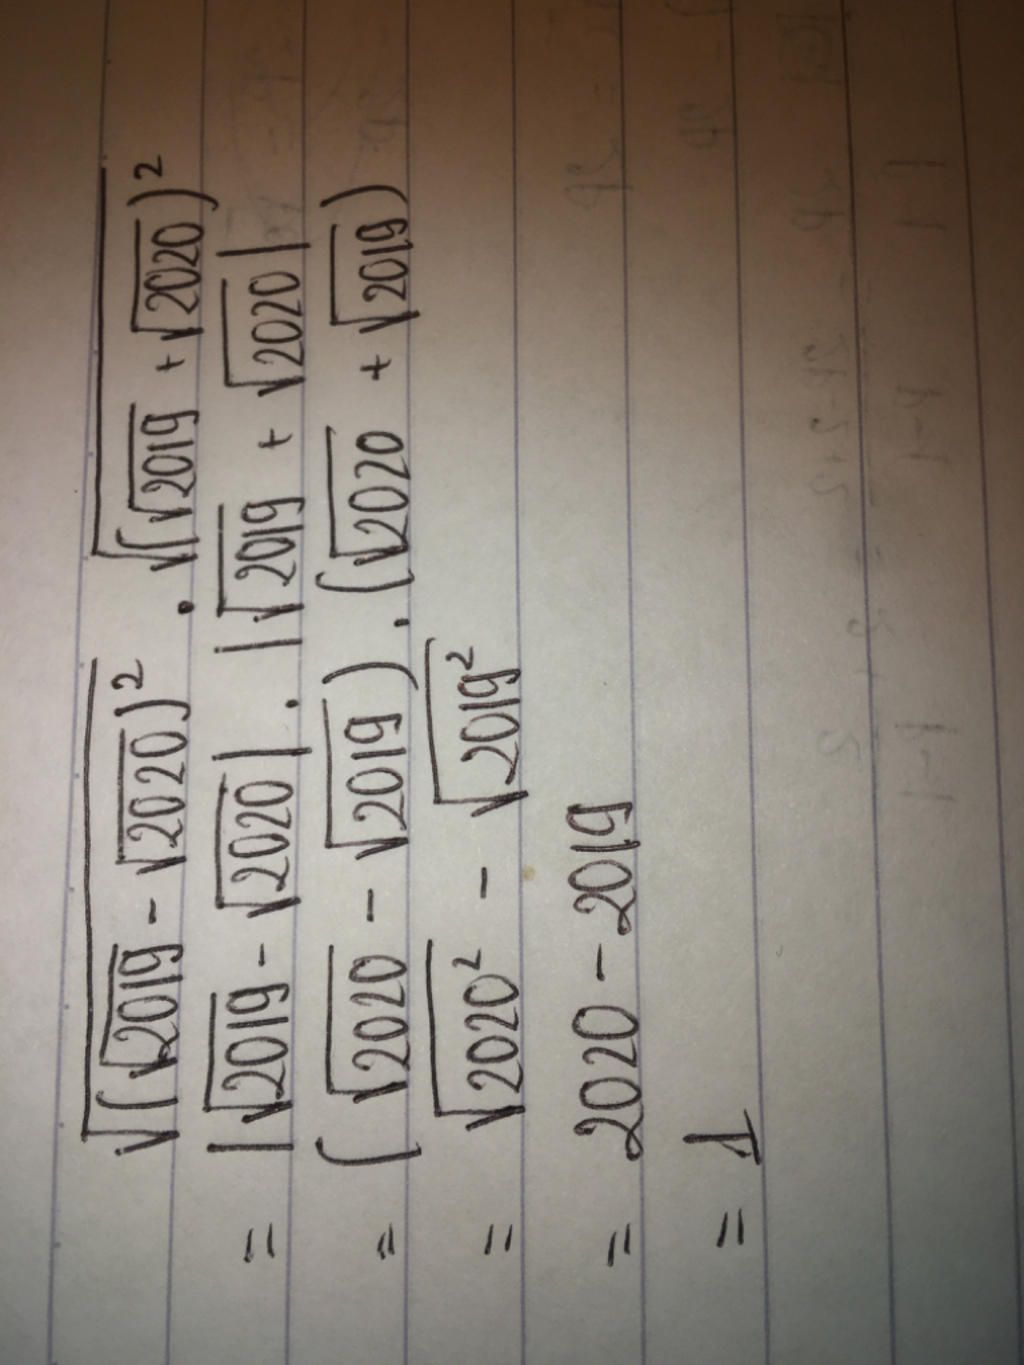 √(√2019 - √2020)² . √(√2019 + √2020)²
= |√2019 - √2020| . |√2019 + √2020|
= (√2020 - √2019) . (√2020 + √2019)
= √2020² - √2019²
= 2020 - 2019
= 1